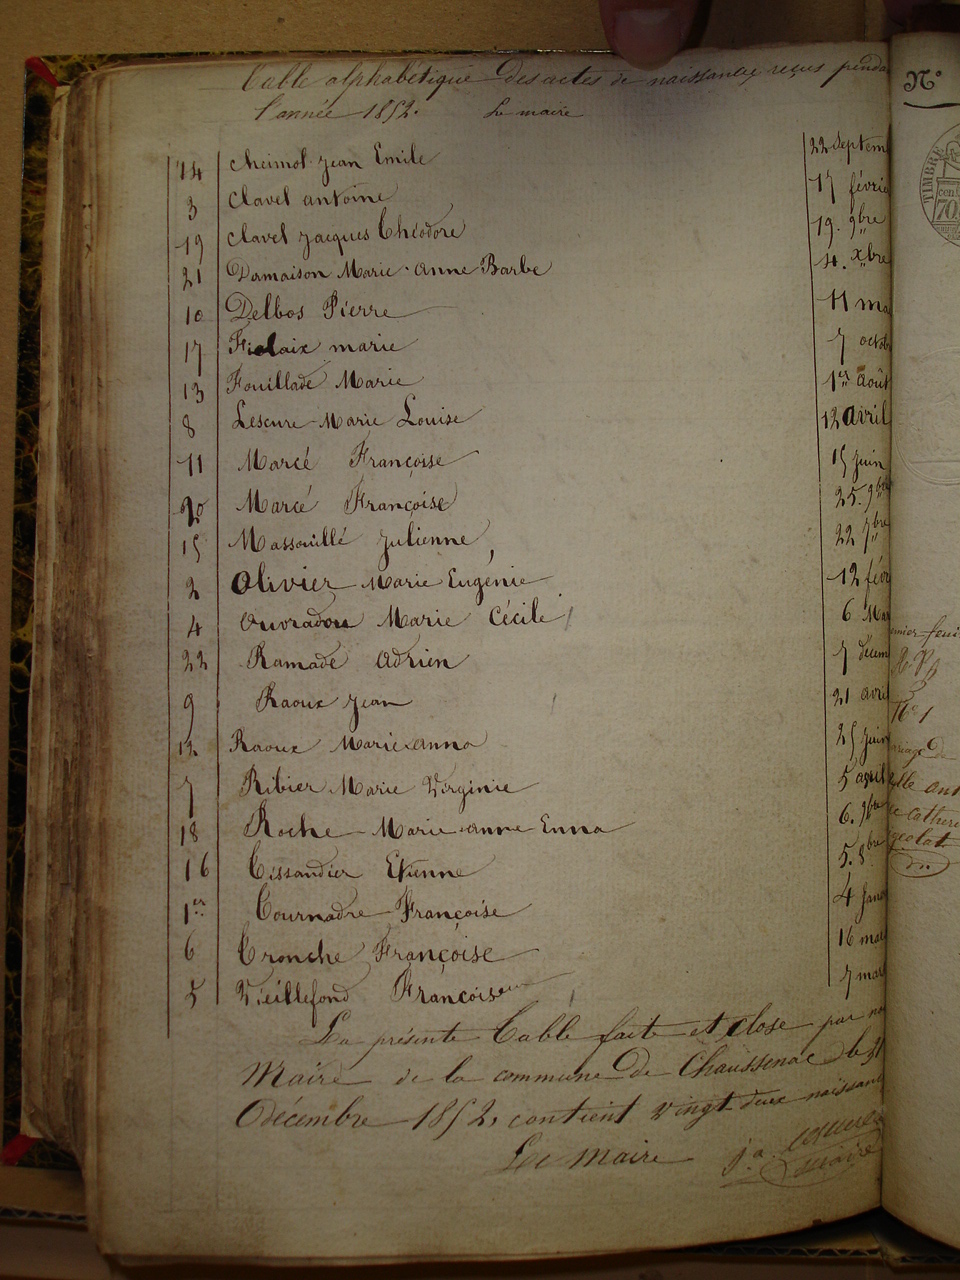 Table alphabétique des actes de naissance reçus penda
l'année 1852. Le maire
14 Cheimol Jean Emile 22 septem
3 Clavel antoine 17 févrie
19 Clavel Jacques Théodore 19. 9bre
21 Damaison Marie-anne Barbe 4. xbre
10 Delbos Pierre 11 ma
17 Fialaix marie 7 octob
13 Fouillade Marie 1er août
8 Lescure Marie Louise 12 avril
11 Marcé Françoise 15 juin
20 Marcé Françoise 25. 9bre
15 Massouillé Julienne 22 7bre
2 Olivier Marie Eugénie 12 févr
4 Ouvradou Marie Cécile 6 Mar
22 Ramade Adrien 7 décem
9 Raoux Jean 21 avril
12 Raoux Marie anna 25 juin
7 Ribier Marie Virginie 5 avril
18 Roche Marie anne Enna 6. 9bre
16 Tissandier Etienne 5. 8bre
1er Tournadre Françoise 4 janv
6 Tronche Françoise 16 mar
5 Vieillefond Françoise 7 mar
La présente Table faite et close par no
Maire de la commune de Chaussenac le 31
Décembre 1852, contient vingt deux naissanc
Le Maire
maire
N°
TIMBRE
70
N° 1